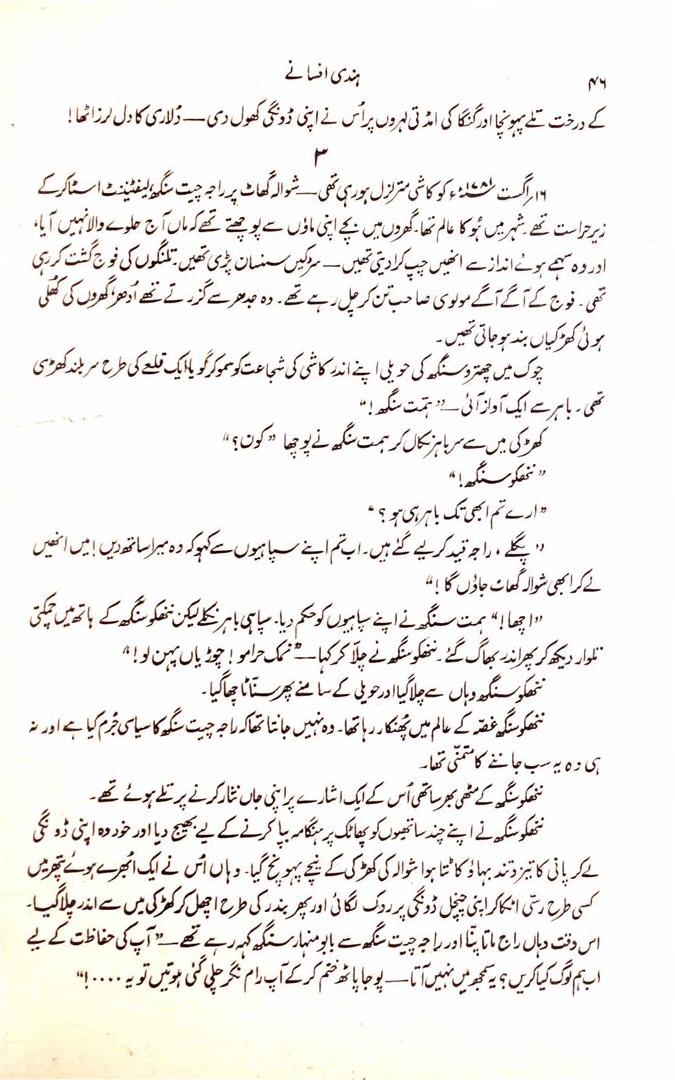 ۴۶
ہندی افسانے
کے درخت تلے پہونچا اور گنگا کی امڈتی لہروں پر اُس نے اپنی ڈونگی کھول دی — دُلاری کا دل لرز اٹھا!
۳
۱۶ر اگست ۱۷۸۱ء کو کاشی متزلزل ہو رہی تھی — شوالہ گھاٹ پر راجہ چیت سنگھ، لیفٹیننٹ اسٹاکر کے
زیر حراست تھے۔ شہر میں ہُو کا عالم تھا۔ گھروں میں بچے اپنی ماؤں سے پوچھتے تھے کہ ماں آج حلوے والا نہیں آیا،
اور وہ سہمے ہوئے انداز سے انھیں چپ کرا دیتی تھیں — سڑکیں سنسان پڑی تھیں۔ تلنگوں کی فوج گشت کر رہی
تھی۔ فوج کے آگے آگے مولوی صاحب تن کر چل رہے تھے۔ وہ جدھر سے گزرتے تھے اُدھر گھروں کی کھلی
ہوئی کھڑکیاں بند ہو جاتی تھیں۔
چوک میں چھترو سنگھ کی حویلی اپنے اندر کاشی کی شجاعت کو سمو کر گویا ایک قلعے کی طرح سربلند کھڑی
تھی۔ باہر سے ایک آواز آئی — ”ہمت سنگھ!“
کھڑکی میں سے سر باہر نکال کر ہمت سنگھ نے پوچھا ”کون؟“
”ننھکو سنگھ!“
”ارے تم ابھی تک باہر ہی ہو؟“
”پگلے، راجہ قید کر لیے گئے ہیں۔ اب تم اپنے سپاہیوں سے کہو کہ وہ میرا ساتھ دیں! میں انھیں
لے کر ابھی شوالہ گھاٹ جاؤں گا!“
”اچھا!“ ہمت سنگھ نے اپنے سپاہیوں کو حکم دیا۔ سپاہی باہر نکلے لیکن ننھکو سنگھ کے ہاتھ میں چمکتی
تلوار دیکھ کر پھر اندر بھاگ گئے۔ ننھکو سنگھ نے چلّا کر کہا — ”نمک حرامو! چوڑیاں پہن لو!“
ننھکو سنگھ وہاں سے چلا گیا اور حویلی کے سامنے پھر سنّاٹا چھا گیا۔
ننھکو سنگھ غصّہ کے عالم میں پُھنکار رہا تھا۔ وہ نہیں جانتا تھا کہ راجہ چیت سنگھ کا سیاسی جُرم کیا ہے اور نہ
ہی وہ یہ سب جاننے کا متمنّی تھا۔
ننھکو سنگھ کے مٹھی بھر ساتھی اُس کے ایک اشارے پر اپنی جان نثار کرنے پر تلے ہوئے تھے۔
ننھکو سنگھ نے اپنے چند ساتھیوں کو پھاٹک پر ہنگامہ بپا کرنے کے لیے بھیج دیا اور خود وہ اپنی ڈونگی
لے کر پانی کا تیز و تند بہاؤ کاٹتا ہوا شوالہ کی کھڑکی کے نیچے پہونچ گیا۔ وہاں اُس نے ایک اُبھرے ہوئے پتھر میں
کسی طرح رسّی اٹکا کر اپنی چنچل ڈونگی پر روک لگائی اور پھر بندر کی طرح اچھل کر کھڑکی میں سے اندر چلا گیا۔
اس وقت وہاں راج ماتا پنّا اور راجہ چیت سنگھ سے بابو منہار سنگھ کہہ رہے تھے — ”آپ کی حفاظت کے لیے
اب ہم لوگ کیا کریں؟ یہ سمجھ میں نہیں آتا — پوجا پاٹھ ختم کر کے آپ رام نگر چلی گئی ہوتیں تو یہ ....!“